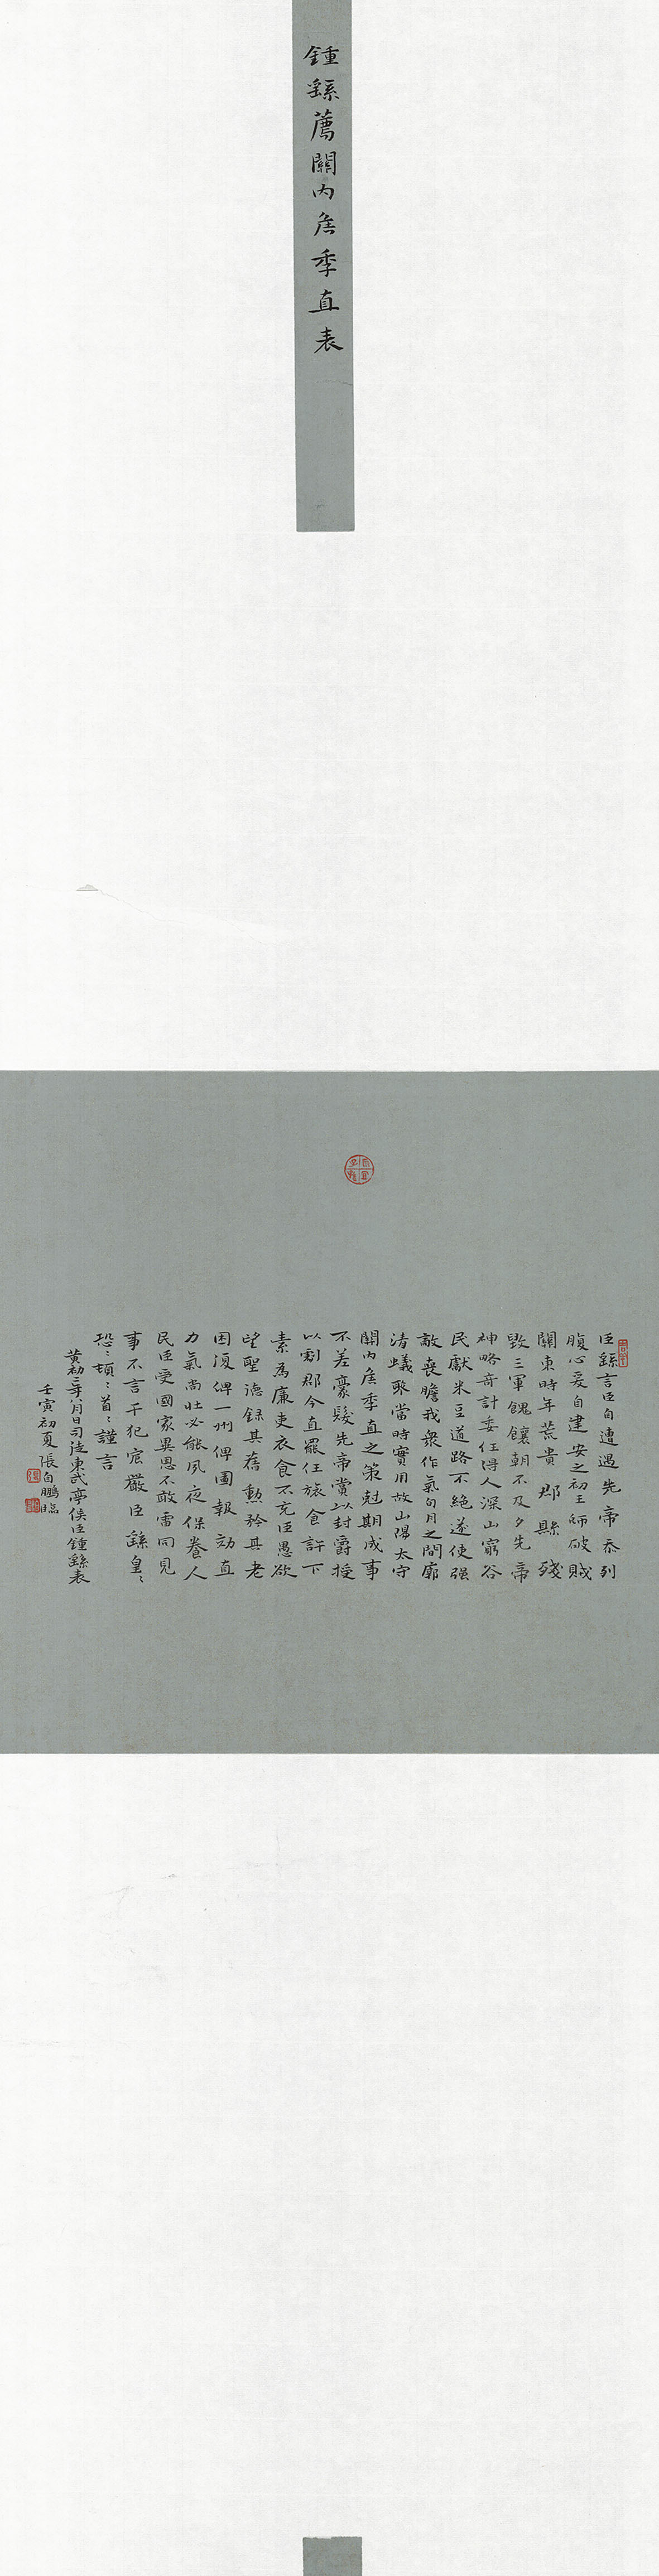 鍾繇薦關內侯季直表
臣繇言臣自遭遇先帝忝列
腹心爰自建安之初王師破賊
關東時年荒貴郡縣殘
毀三軍餽饟朝不及夕先帝
神略奇計委任得人深山窮谷
民獻米豆道路不絕遂使强
敵喪膽我衆作氣旬月之間廓
清蟻聚當時實用故山陽太守
關內侯季直之策尅期成事
不差豪髮先帝賞以封爵授
以劇郡今直罷任旅食許下
素為廉吏衣食不充臣愚欲
望聖德錄其舊勳矜其老
困復俾一州俾圖報効直
力氣尚壯必能夙夜保養人
民臣受國家異恩不敢雷同見
事不言干犯宸嚴臣繇皇〻
恐〻頓〻首〻謹言
黃初二年八月日司徒東武亭侯臣鍾繇表
壬寅初夏張向鵬臨